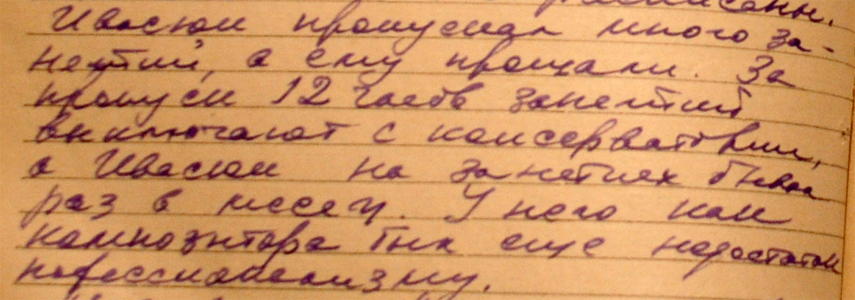 Ивасюк пропускал много за-
нятий, а ему прощали. За
пропуск 12 часов занятий
выключают с консерватории,
а Ивасюк на занятиях бывал
раз в месяц. У него как
композитора был еще недостаток
профессионализму.